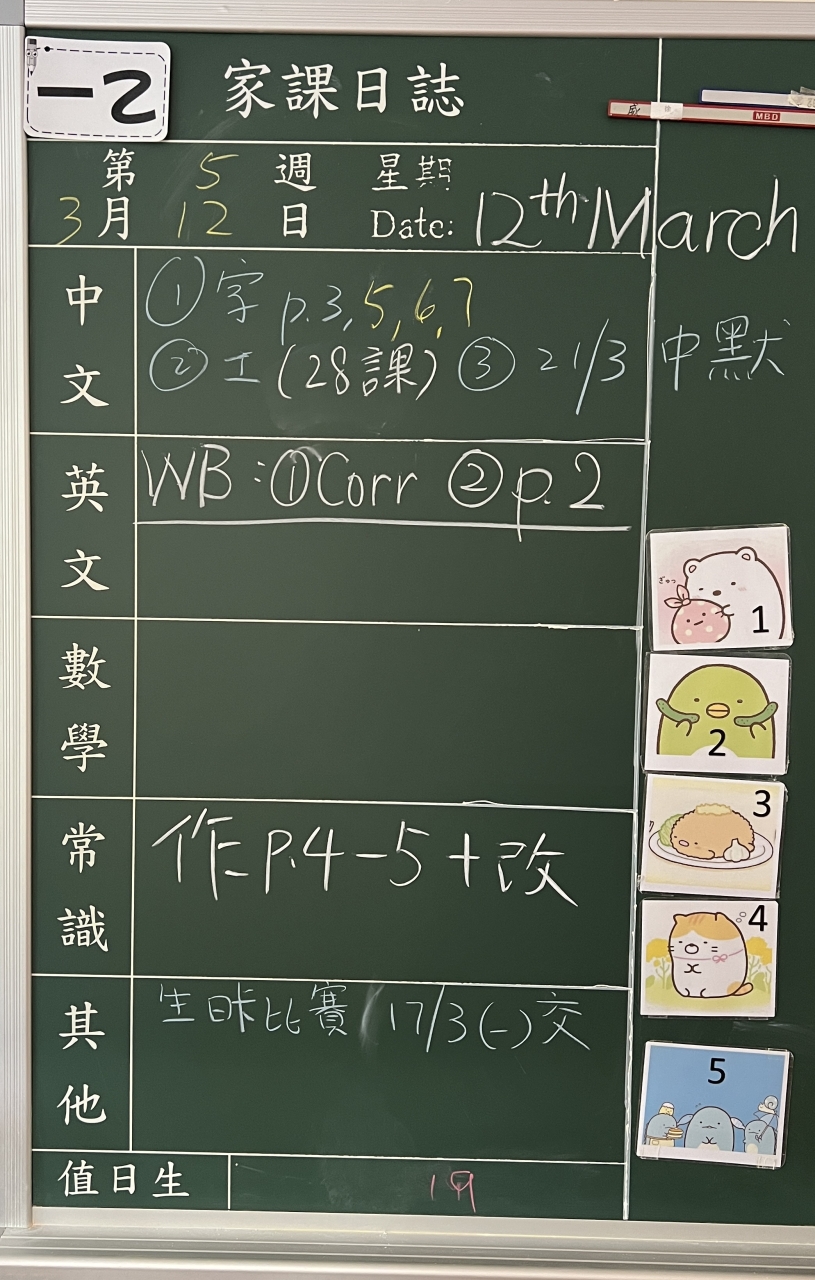 一乙
家課日誌
MBD
第 5 週 星期
3月12日 Date: 12th March
中文
①字 p.3,5,6,7
②工(28課) ③ 21/3 中默
英文
WB:①Corr ②p.2
數學
常識
作 p.4-5+改
其他
生日咭比賽 17/3(一)交
值日生 19
1
2
3
4
5